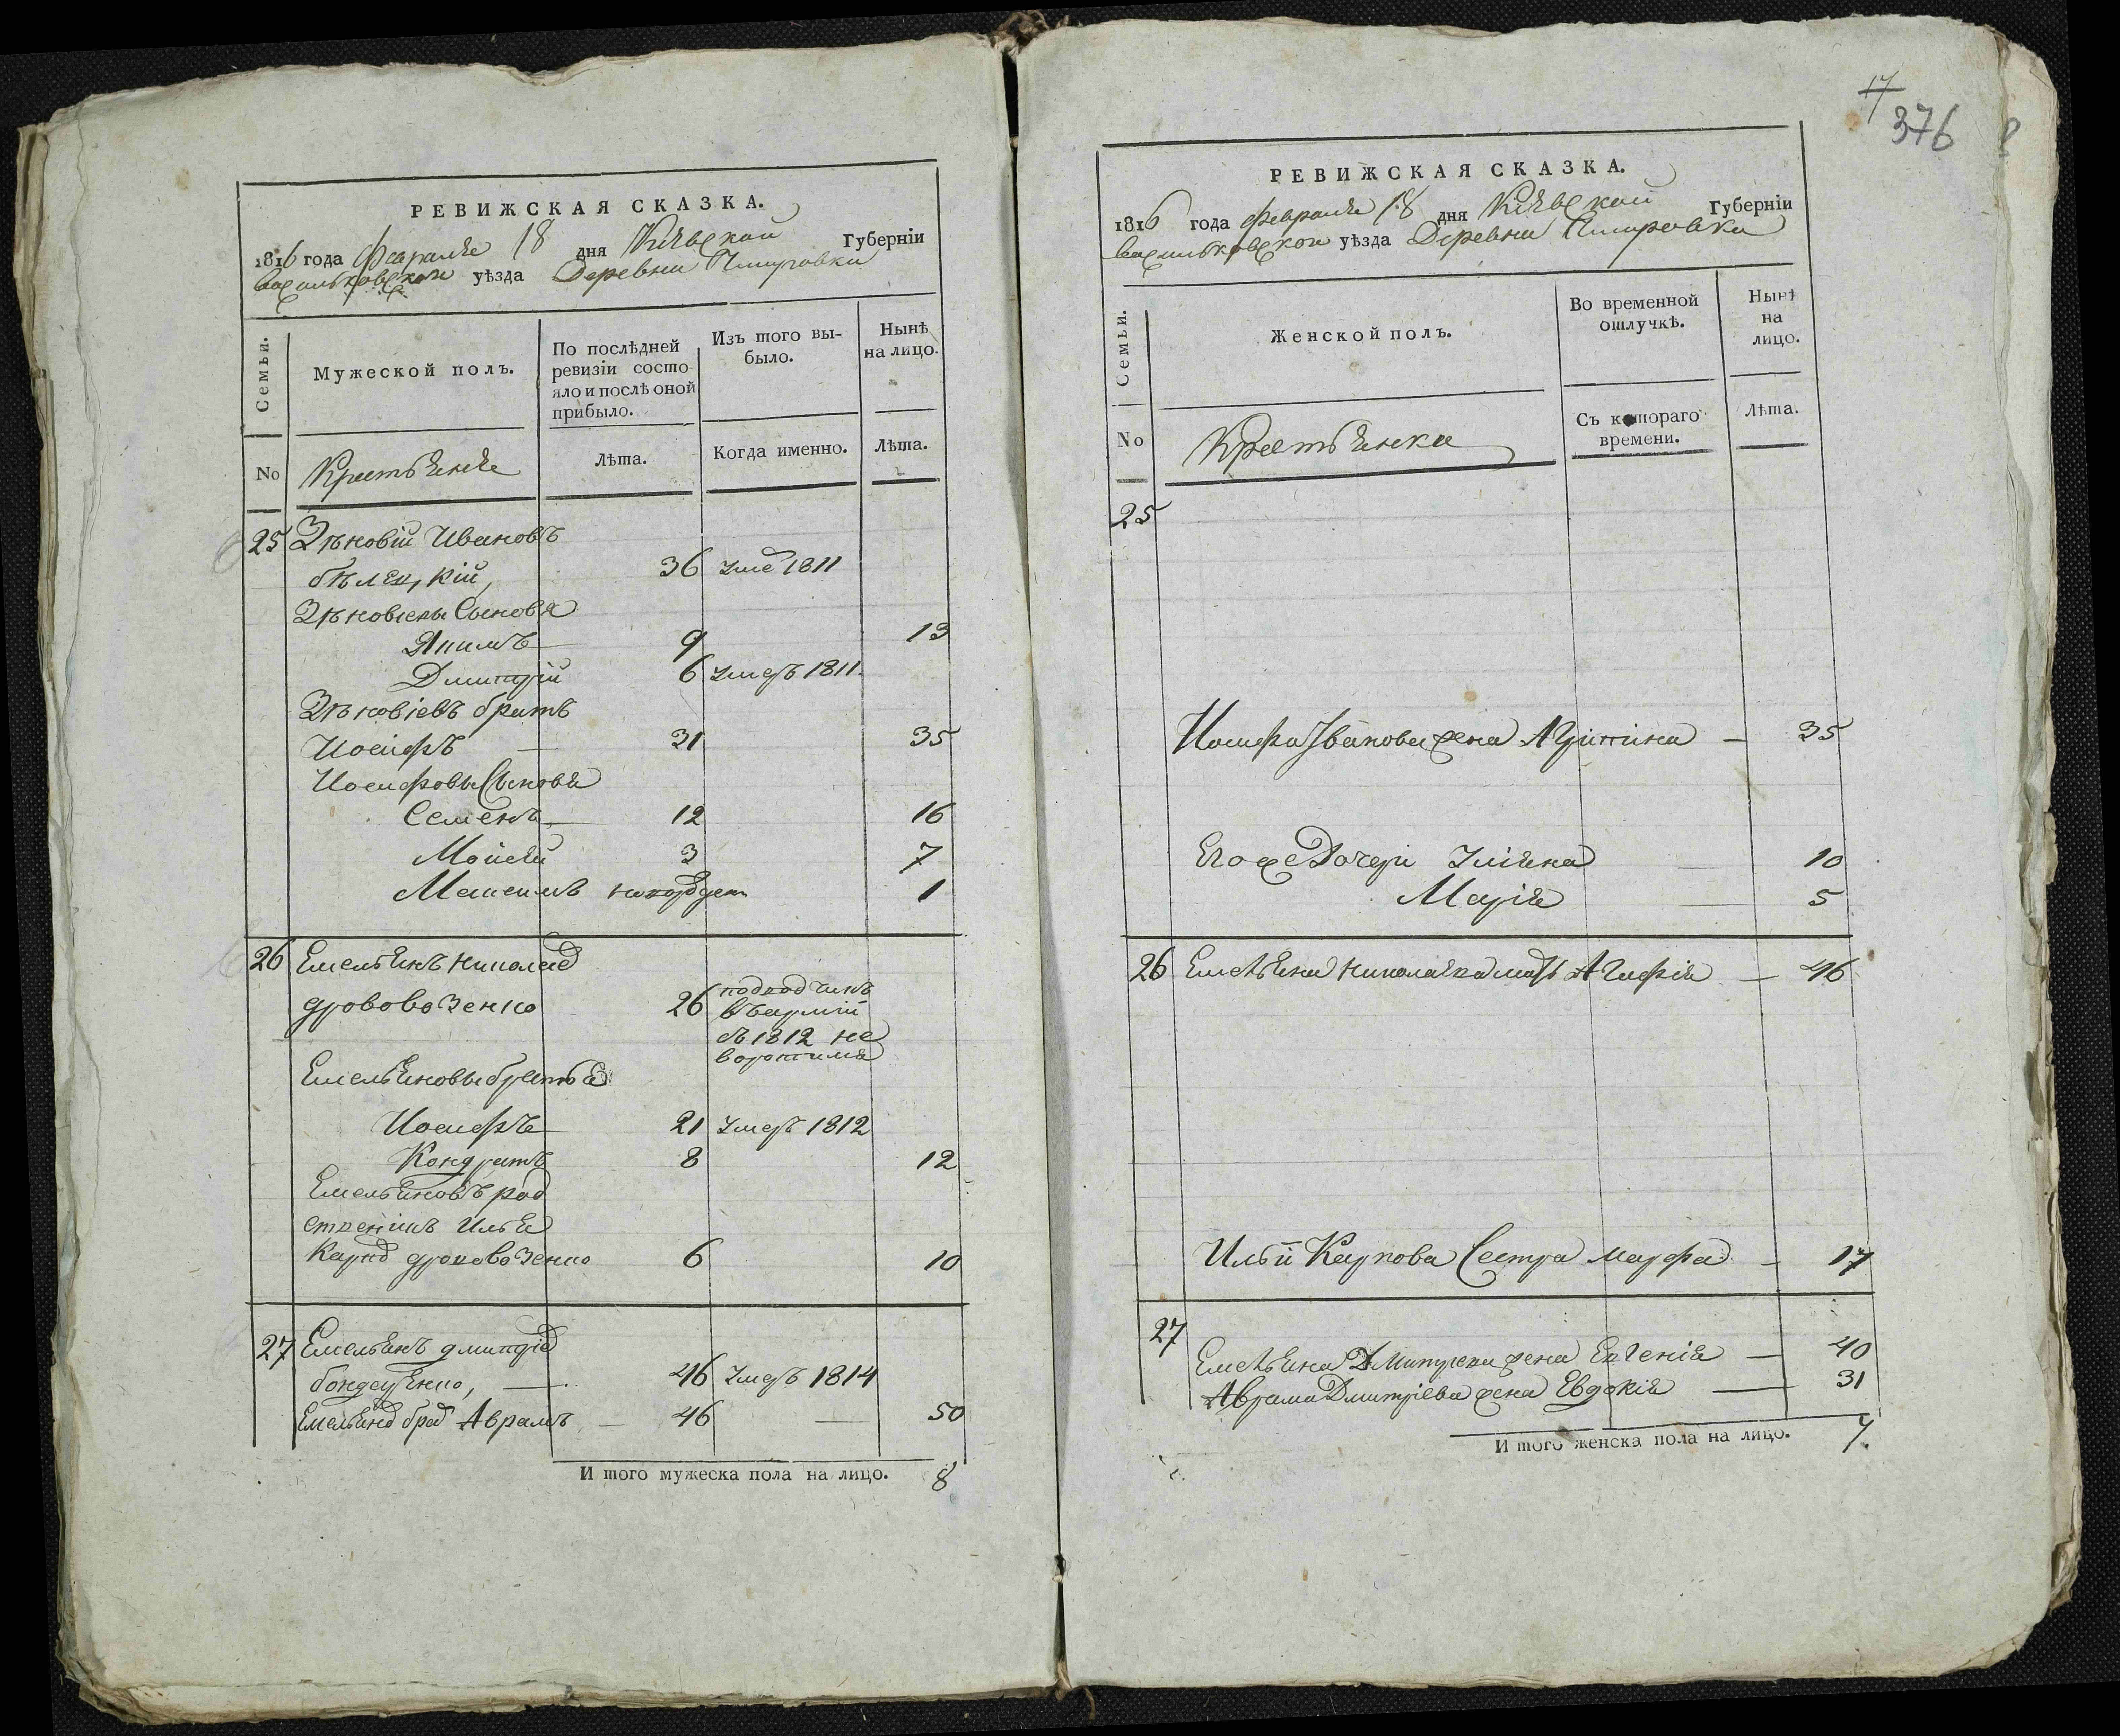 РЕВИЖСКАЯ СКАЗКА.
1816 года Февраля 18 дня Кіевской Губерніи
Васильковской уѣзда Деревни
Семьи.
Мужеской полъ.
По послѣдней ревизіи состояло и послѣ оной прибыло.
Изъ того выбыло.
Нынѣ на лицо.
No
Крестьяне
Лѣта.
Когда именно.
Лѣта.
25 Зѣновій Ивановъ
бѣлецкій, 36 1811
Зѣновіевы Сыновя
Якимъ 9 13
Дмитрій 6 умеръ 1811.
Зѣновіевъ братъ
Иосифъ 31 35
Иосифовы Сыновя
Семенъ 12 16
Мойсѣй 3 7
Максимъ новорожден 1
26 Емельянъ Николаев
дрововозенко 26 подводчикъ
въ армій
съ 1812 не
воротился
Емельяновы братья
Иосифъ 21 умеръ 1812
Кондратъ 8 12
Емельяновъ род
ственикъ Илья
Карпов дрововозенко 6 10
27 Емельянъ дмитрів
бондаренко, 46 умеръ 1814
Емельянов брат Аврамъ 46 50
И того мужеска пола на лицо. 8
17
376
РЕВИЖСКАЯ СКАЗКА.
1816 года Февраля 18 дня Кіевской Губерніи
Васильковской уѣзда Деревни
Семьи.
Женской полъ.
Во временной отлучкѣ.
Нынѣ на лицо.
No
Крестьянки
Съ котораго времени.
Лѣта.
25
Иосифа Иванова жена Агрипина 35
Его же Дочери Уліяна 10
Марія 5
26 Емельяна Николаева мать Агафія 46
Ильи Карпова Сестра Марфа 17
27
Емельяна Дмитриева жена Евгенія 40
Аврама Дмитріева жена Евдокія 31
И того женска пола на лицо. 7.